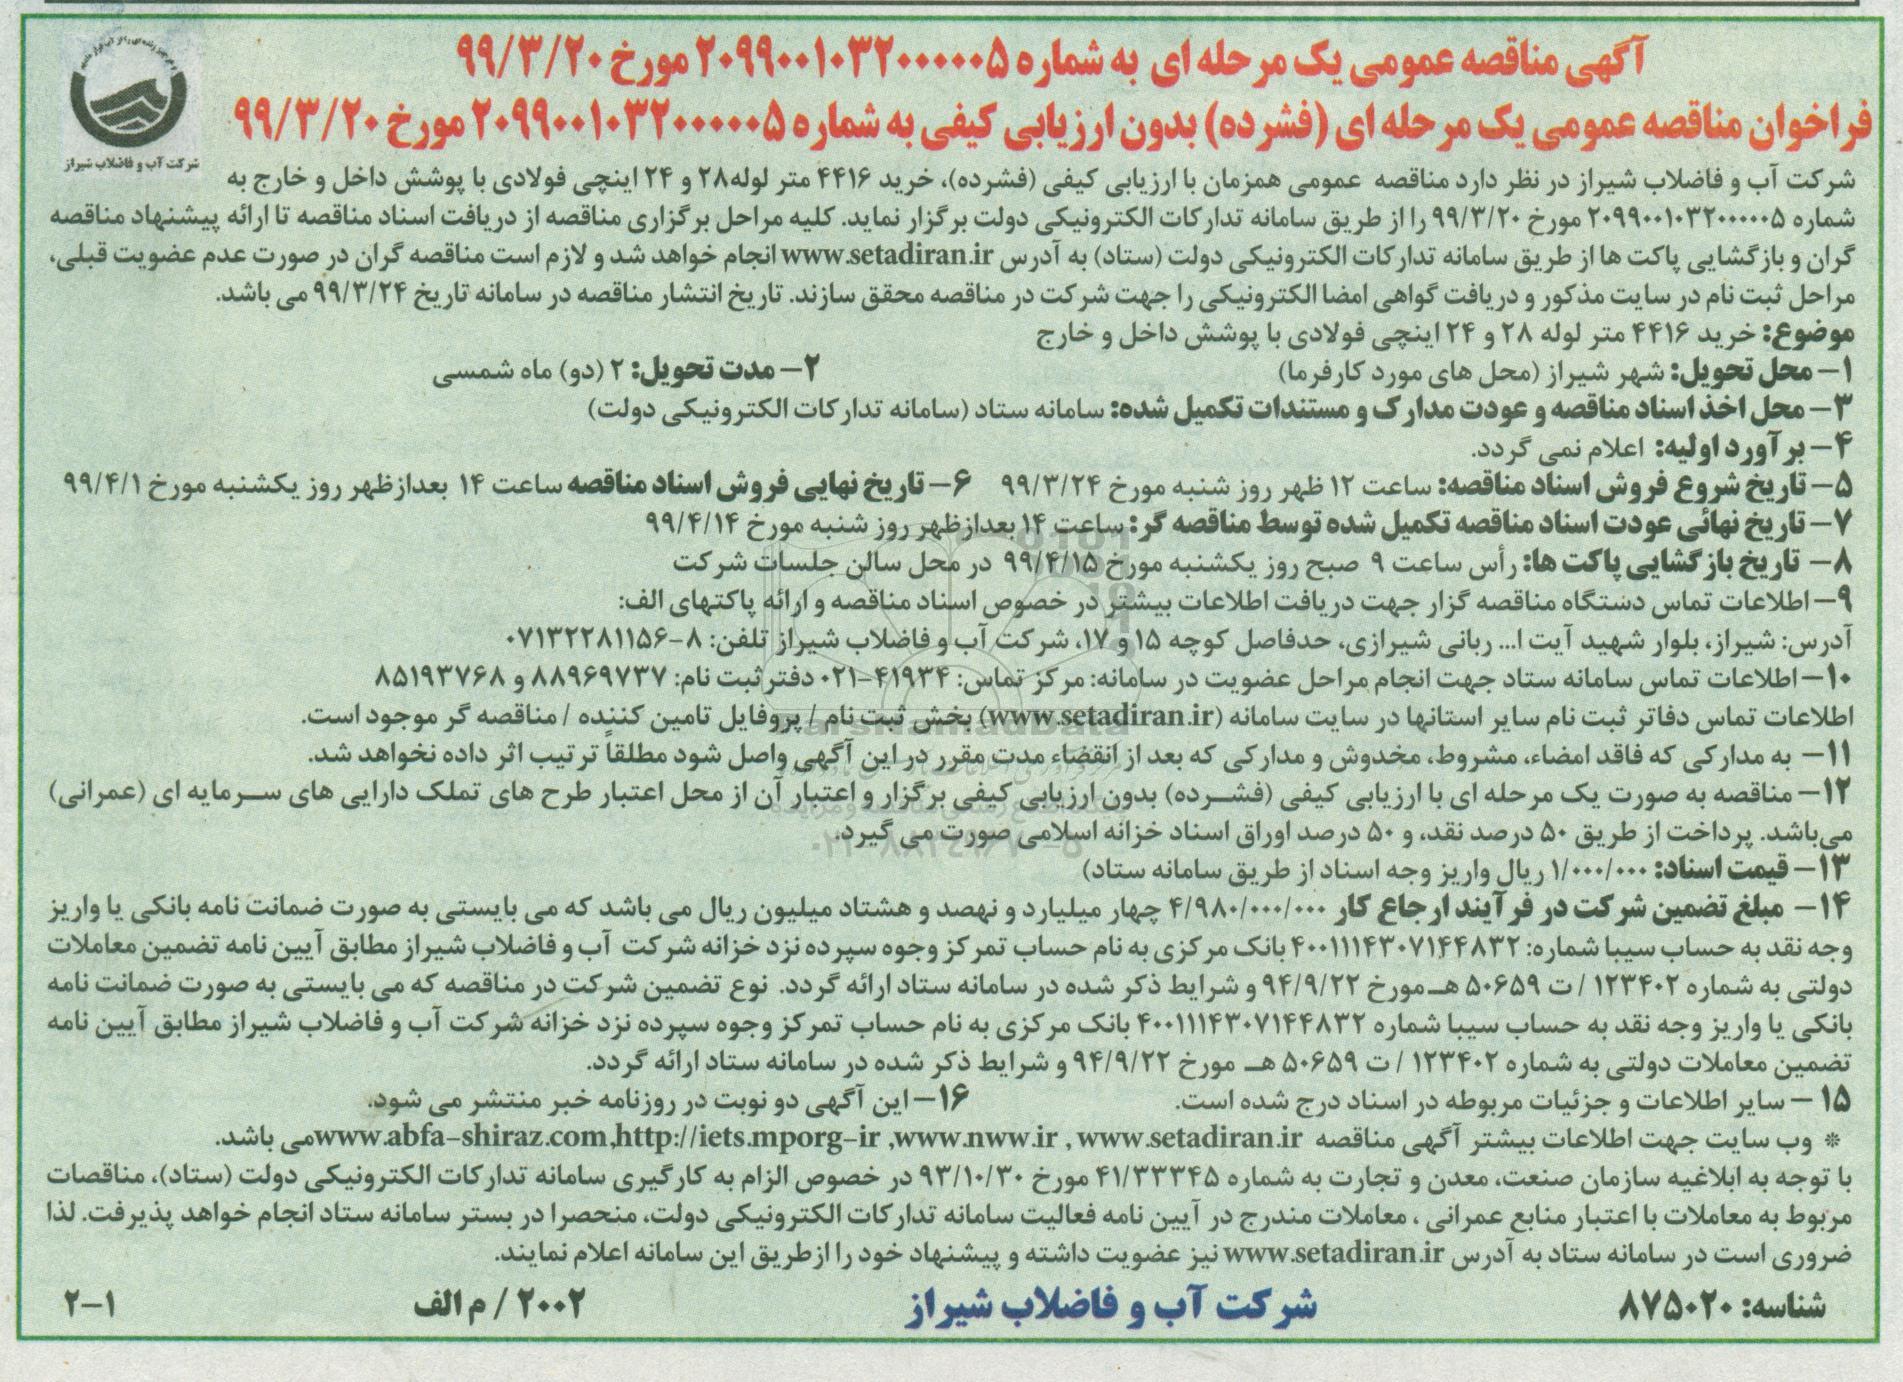 آگهی مناقصه عمومی یک مرحله ای به شماره ۲۰۹۹۰۰۱۰۳۲۰۰۰۰۰۵ مورخ ۹۹/۳/۲۰
فراخوان مناقصه عمومی یک مرحله ای (فشرده) بدون ارزیابی کیفی به شماره ۲۰۹۹۰۰۱۰۳۲۰۰۰۰۰۵ مورخ ۹۹/۳/۲۰
شرکت آب و فاضلاب شیراز
شرکت آب و فاضلاب شیراز در نظر دارد مناقصه عمومی همزمان با ارزیابی کیفی (فشرده)، خرید ۴۴۱۶ متر لوله۲۸ و ۲۴ اینچی فولادی با پوشش داخل و خارج به
شماره ۲۰۹۹۰۰۱۰۳۲۰۰۰۰۰۵ مورخ ۹۹/۳/۲۰ را از طریق سامانه تدارکات الکترونیکی دولت برگزار نماید. کلیه مراحل برگزاری مناقصه از دریافت اسناد مناقصه تا ارائه پیشنهاد مناقصه
گران و بازگشایی پاکت ها از طریق سامانه تدارکات الکترونیکی دولت (ستاد) به آدرس www.setadiran.ir انجام خواهد شد و لازم است مناقصه گران در صورت عدم عضویت قبلی،
مراحل ثبت نام در سایت مذکور و دریافت گواهی امضا الکترونیکی را جهت شرکت در مناقصه محقق سازند. تاریخ انتشار مناقصه در سامانه تاریخ ۹۹/۳/۲۴ می باشد.
موضوع: خرید ۴۴۱۶ متر لوله ۲۸ و ۲۴ اینچی فولادی با پوشش داخل و خارج
۱– محل تحویل: شهر شیراز (محل های مورد کارفرما) ۲– مدت تحویل: ۲ (دو) ماه شمسی
۳– محل اخذ اسناد مناقصه و عودت مدارک و مستندات تکمیل شده: سامانه ستاد (سامانه تدارکات الکترونیکی دولت)
۴– برآورد اولیه: اعلام نمی گردد.
۵– تاریخ شروع فروش اسناد مناقصه: ساعت ۱۲ ظهر روز شنبه مورخ ۹۹/۳/۲۴ ۶– تاریخ نهایی فروش اسناد مناقصه ساعت ۱۴ بعدازظهر روز یکشنبه مورخ ۹۹/۴/۱
۷– تاریخ نهائی عودت اسناد مناقصه تکمیل شده توسط مناقصه گر: ساعت ۱۴ بعدازظهر روز شنبه مورخ ۹۹/۴/۱۴
۸– تاریخ بازگشایی پاکت ها: رأس ساعت ۹ صبح روز یکشنبه مورخ ۹۹/۴/۱۵ در محل سالن جلسات شرکت
۹– اطلاعات تماس دستگاه مناقصه گزار جهت دریافت اطلاعات بیشتر در خصوص اسناد مناقصه و ارائه پاکتهای الف:
آدرس: شیراز، بلوار شهید آیت ا... ربانی شیرازی، حدفاصل کوچه ۱۵ و ۱۷، شرکت آب و فاضلاب شیراز تلفن: ۸–۰۷۱۳۲۲۸۱۱۵۶
۱۰– اطلاعات تماس سامانه ستاد جهت انجام مراحل عضویت در سامانه: مرکز تماس: ۴۱۹۳۴–۰۲۱ دفتر ثبت نام: ۸۸۹۶۹۷۳۷ و ۸۵۱۹۳۷۶۸
اطلاعات تماس دفاتر ثبت نام سایر استانها در سایت سامانه (www.setadiran.ir) بخش ثبت نام / پروفایل تامین کننده / مناقصه گر موجود است.
۱۱– به مدارکی که فاقد امضاء، مشروط، مخدوش و مدارکی که بعد از انقضاء مدت مقرر در این آگهی واصل شود مطلقاً ترتیب اثر داده نخواهد شد.
۱۲– مناقصه به صورت یک مرحله ای با ارزیابی کیفی (فشرده) بدون ارزیابی کیفی برگزار و اعتبار آن از محل اعتبار طرح های تملک دارایی های سرمایه ای (عمرانی)
می‌باشد. پرداخت از طریق ۵۰ درصد نقد، و ۵۰ درصد اوراق اسناد خزانه اسلامی صورت می گیرد.
۱۳– قیمت اسناد: ۱/۰۰۰/۰۰۰ ریال واریز وجه اسناد از طریق سامانه ستاد)
۱۴– مبلغ تضمین شرکت در فرآیند ارجاع کار ۴/۹۸۰/۰۰۰/۰۰۰ چهار میلیارد و نهصد و هشتاد میلیون ریال می باشد که می بایستی به صورت ضمانت نامه بانکی یا واریز
وجه نقد به حساب سیبا شماره: ۴۰۰۱۱۱۴۳۰۷۱۴۴۸۳۲ بانک مرکزی به نام حساب تمرکز وجوه سپرده نزد خزانه شرکت آب و فاضلاب شیراز مطابق آیین نامه تضمین معاملات
دولتی به شماره ۱۲۳۴۰۲ / ت ۵۰۶۵۹ هـ مورخ ۹۴/۹/۲۲ و شرایط ذکر شده در سامانه ستاد ارائه گردد. نوع تضمین شرکت در مناقصه که می بایستی به صورت ضمانت نامه
بانکی یا واریز وجه نقد به حساب سیبا شماره ۴۰۰۱۱۱۴۳۰۷۱۴۴۸۳۲ بانک مرکزی به نام حساب تمرکز وجوه سپرده نزد خزانه شرکت آب و فاضلاب شیراز مطابق آیین نامه
تضمین معاملات دولتی به شماره ۱۲۳۴۰۲ / ت ۵۰۶۵۹ هـ مورخ ۹۴/۹/۲۲ و شرایط ذکر شده در سامانه ستاد ارائه گردد.
۱۵ – سایر اطلاعات و جزئیات مربوطه در اسناد درج شده است. ۱۶– این آگهی دو نوبت در روزنامه خبر منتشر می شود.
* وب سایت جهت اطلاعات بیشتر آگهی مناقصه www.abfa-shiraz.com,http://iets.mporg-ir ,www.nww.ir , www.setadiran.ir می باشد.
با توجه به ابلاغیه سازمان صنعت، معدن و تجارت به شماره ۴۱/۳۳۳۴۵ مورخ ۹۳/۱۰/۳۰ در خصوص الزام به کارگیری سامانه تدارکات الکترونیکی دولت (ستاد)، مناقصات
مربوط به معاملات با اعتبار منابع عمرانی ، معاملات مندرج در آیین نامه فعالیت سامانه تدارکات الکترونیکی دولت، منحصرا در بستر سامانه ستاد انجام خواهد پذیرفت. لذا
ضروری است در سامانه ستاد به آدرس www.setadiran.ir نیز عضویت داشته و پیشنهاد خود را از طریق این سامانه اعلام نمایند.
شناسه: ۸۷۵۰۲۰ شرکت آب و فاضلاب شیراز ۲۰۰۲ / م الف ۱–۲